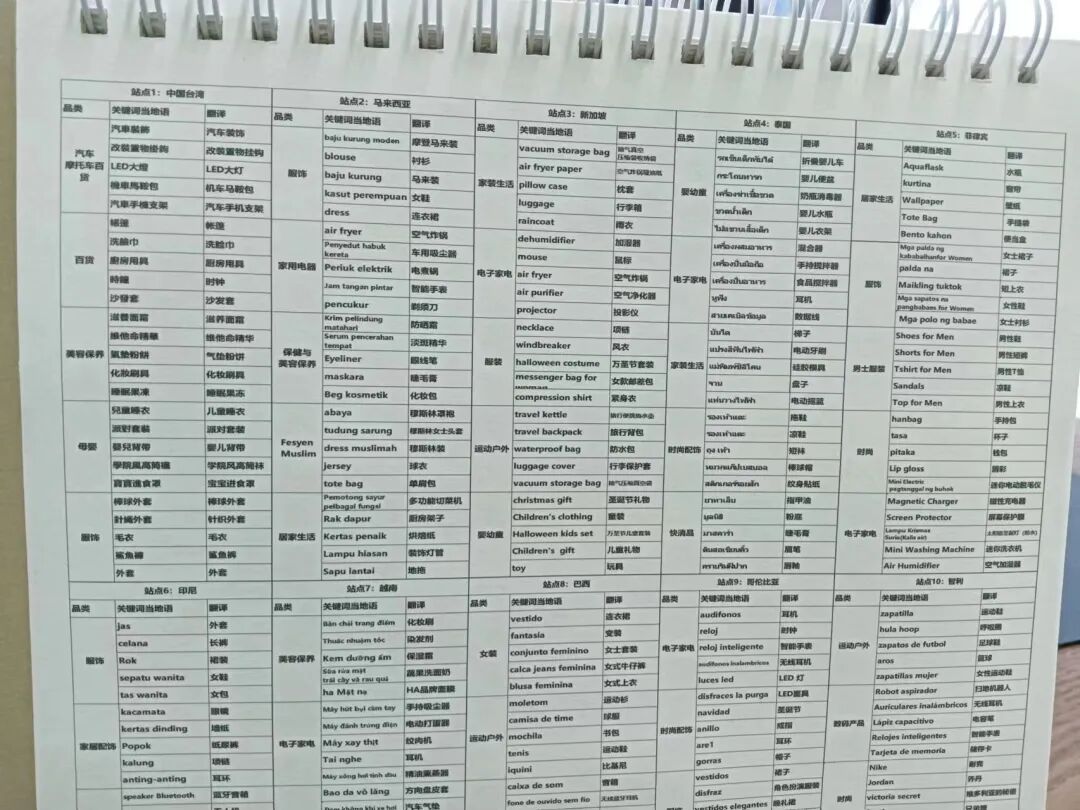 站点1：中国台湾
品类 关键词当地语 翻译
汽车摩托车百货
汽車裝飾 汽车装饰
改裝置物掛鉤 改装置物挂钩
LED大燈 LED大灯
機車馬鞍包 机车马鞍包
汽車手機支架 汽车手机支架
百货
帳篷 帐篷
洗臉巾 洗脸巾
廚房用具 厨房用具
時鐘 时钟
沙發套 沙发套
美容保养
滋養面霜 滋养面霜
維他命精華 维他命精华
氣墊粉餅 气垫粉饼
化妝刷具 化妆刷具
睡眠果凍 睡眠果冻
母婴
兒童睡衣 儿童睡衣
派對套裝 派对套装
嬰兒背帶 婴儿背带
學院風高筒襪 学院风高筒袜
寶寶進食罩 宝宝进食罩
服饰
棒球外套 棒球外套
針織外套 针织外套
毛衣 毛衣
鯊魚褲 鲨鱼裤
外套 外套
站点2：马来西亚
品类 关键词当地语 翻译
服饰
baju kurung moden 摩登马来装
blouse 衬衫
baju kurung 马来装
kasut perempuan 女鞋
dress 连衣裙
家用电器
air fryer 空气炸锅
Penyedut habuk kereta 车用吸尘器
Periuk elektrik 电煮锅
Jam tangan pintar 智能手表
pencukur 剃须刀
保健与美容保养
Krim pelindung matahari 防晒霜
Serum pencerahan tempat 淡斑精华
Eyeliner 眼线笔
maskara 睫毛膏
Beg kosmetik 化妆包
Fesyen Muslim
abaya 穆斯林罩袍
tudung sarung 穆斯林女士头套
dress muslimah 穆斯林装
jersey 球衣
tote bag 单肩包
居家生活
Pemotong sayur pelbagai fungsi 多功能切菜机
Rak dapur 厨房架子
Kertas penaik 烘焙纸
Lampu hiasan 装饰灯管
Sapu lantai 地拖
站点3：新加坡
品类 关键词当地语 翻译
家装生活
vacuum storage bag 抽气真空压缩袋收纳袋
air fryer paper 空气炸锅吸油纸
pillow case 枕套
luggage 行李箱
raincoat 雨衣
电子家电
dehumidifier 加湿器
mouse 鼠标
air fryer 空气炸锅
air purifier 空气净化器
projector 投影仪
服装
necklace 项链
windbreaker 风衣
halloween costume 万圣节套装
messenger bag for woman 女款邮差包
compression shirt 紧身衣
运动户外
travel kettle 旅行便携热水壶
travel backpack 旅行背包
waterproof bag 防水包
luggage cover 行李保护套
vacuum storage bag 抽气压缩真空袋
婴幼童
christmas gift 圣诞节礼物
Children's clothing 童装
Halloween kids set 万圣节儿童套装
Children's gift 儿童礼物
toy 玩具
站点4：泰国
品类 关键词当地语 翻译
婴幼童
รถเข็นเด็กพับได้ 折叠婴儿车
กระโถนทารก 婴儿便盆
เครื่องฆ่าเชื้อขวด 奶瓶消毒器
ขวดน้ำเด็ก 婴儿水瓶
ไม้แขวนเสื้อเด็ก 婴儿衣架
电子家电
เครื่องผสมอาหาร 混合器
เครื่องปั่นมือถือ 手持搅拌器
เครื่องปั่นอาหาร 食品搅拌器
หูฟัง 耳机
สายเคเบิลข้อมูล 数据线
家装生活
บันได 梯子
แปรงสีฟันไฟฟ้า 电动牙刷
แม่พิมพ์ซิลิโคน 硅胶模具
จาน 盘子
电动摇篮
时尚配饰
รองเท้าแตะ 拖鞋
รองเท้าแตะ 凉鞋
ถุงเท้า 短袜
หมวกแก๊ปเบสบอล 棒球帽
สติกเกอร์รอยสัก 纹身贴纸
快消品
ยาทาเล็บ 指甲油
มูสลีนี 粉底
มาสคาร่า 睫毛膏
ดินสอเขียนคิ้ว 眉笔
唇釉
站点5：菲律宾
品类 关键词当地语 翻译
居家生活
Aquaflask 水瓶
kurtina 窗帘
Wallpaper 壁纸
Tote Bag 手提袋
Bento kahon 便当盒
服饰
Mga palda ng kababaihanfor Women 女士裙子
palda na 裙子
Maikling tuktok 短上衣
Mga sapatos na pangbabaes for Women 女性鞋
Mga polo ng babae 女士衬衫
男士服装
Shoes for Men 男性鞋
Shorts for Men 男性短裤
Tshirt for Men 男性T恤
Sandals 凉鞋
Top for Men 男性上衣
时尚
hanbag 手持包
tasa 杯子
pitaka 钱包
Lip gloss 唇彩
Mini Electric pagtanggal ng buhok 迷你电动脱毛仪
电子家电
Magnetic Charger 磁性充电器
Screen Protector 屏幕保护膜
Lampu Krismas Suria(Kalis air) 太阳能圣诞灯（防水）
Mini Washing Machine 迷你洗衣机
Air Humidifier 空气加湿器
站点6：印尼
品类 关键词当地语 翻译
服饰
jas 外套
celana 长裤
Rok 裙装
sepatu wanita 女鞋
tas wanita 女包
家居配饰
kacamata 眼镜
kertas dinding 墙纸
Popok 纸尿裤
kalung 项链
anting-anting 耳环
speaker Bluetooth 蓝牙音箱
站点7：越南
品类 关键词当地语 翻译
美容保养
Bàn chải trang điểm 化妆刷
Thuốc nhuộm tóc 染发剂
Kem dưỡng ẩm 保湿霜
Sữa rửa mặt trái cây và rau quả 蔬果洗面奶
ha Mặt nạ HA品牌面膜
电子家电
Máy hút bụi cầm tay 手持吸尘器
Máy đánh trứng điện 电动打蛋器
Máy xay thịt 绞肉机
Tai nghe 耳机
Máy xông hơi tinh dầu 精油熏蒸器
Bao da vô lăng 方向盘皮套
汽车气垫
站点8：巴西
品类 关键词当地语 翻译
女装
vestido 连衣裙
fantasia 变装
conjunto feminino 女士套装
calca jeans feminina 女式牛仔裤
blusa feminina 女式上衣
运动户外
moletom 运动衫
camisa de time 球服
mochila 书包
tenis 运动鞋
iquini 比基尼
caixa de som 音箱
fone de ouvido sem fio 无线蓝牙耳机
站点9：哥伦比亚
品类 关键词当地语 翻译
电子家电
audifonos 耳机
reloj 时钟
reloj inteligente 智能手表
audifonos inalambricos 无线耳机
luces led LED 灯
时尚配饰
disfraces la purga LED面具
navidad 圣诞节
anillo 戒指
are1 耳环
gorras 帽子
vestidos 裙子
disfraz 角色扮演服装
vestidos elegantes 晚礼裙
站点10：智利
品类 关键词当地语 翻译
运动户外
zapatilla 运动鞋
hula hoop 呼啦圈
zapatos de futbol 足球鞋
aros 篮球
zapatillas mujer 女性运动鞋
数码产品
Robot aspirador 扫地机器人
Auriculares inalámbricos 无线耳机
Lápiz capacitivo 电容笔
Relojes inteligentes 智能手表
Tarjeta de memoria 储存卡
时尚
Nike 耐克
Jordan 乔丹
victoria secret 维多利亚的秘密